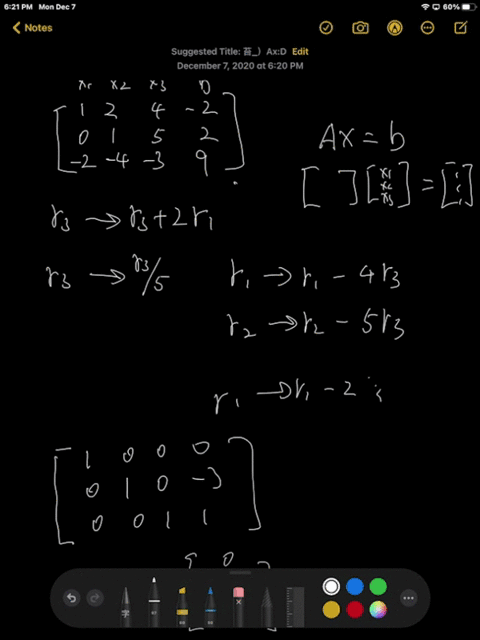 6:21 PM Mon Dec 7
60%
Notes
Suggested Title: 苔_) Ax:D Edit
December 7, 2020 at 6:20 PM
x1 x2 x3 b
1 2 4 -2
0 1 5 2
-2 -4 -3 9
Ax = b
[ ] [x1 x2 x3] = [ ]
r3 → r3 + 2r1
r3 → r3/5
r1 → r1 - 4r3
r2 → r2 - 5r3
r1 → r1 - 2
1 0 0 0
0 1 0 -3
0 0 1 1